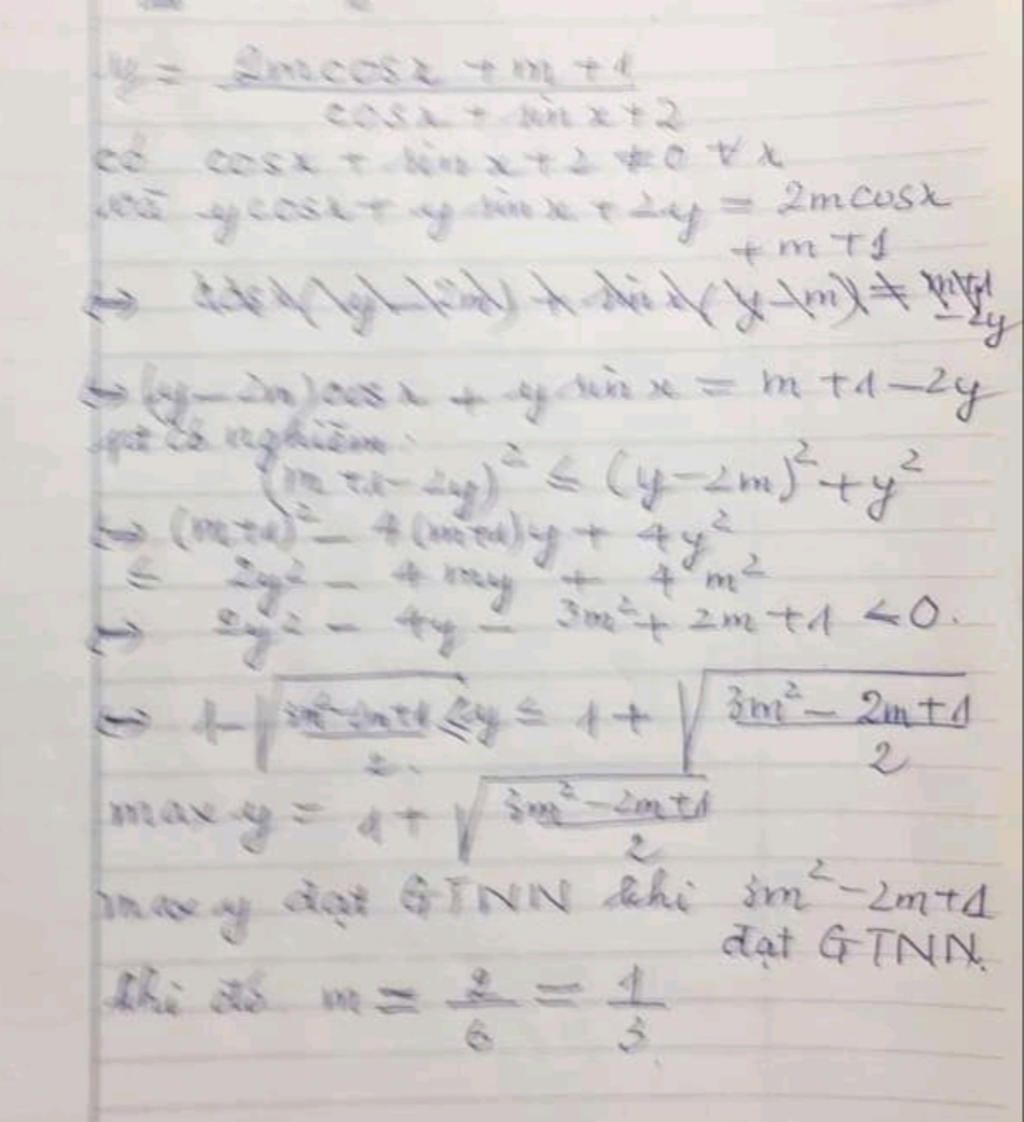 y = (2m cosx + m + 1) / (cosx + sin x + 2)
có cosx + sin x + 2 ≠ 0 ∀ x
y cosx + y sin x + 2y = 2m cosx
+ m + 1
⇔ (y - 2m) cos x + y sin x = m + 1 - 2y
pt có nghiệm:
(m + 1 - 2y)² ≤ (y - 2m)² + y²
⇔ (m+1)² - 4(m+1)y + 4y²
≤ 2y² - 4my + 4m²
⇔ 2y² - 4y - 3m² + 2m + 1 ≤ 0.
⇔ 1 - √((3m² - 2m + 1) / 2) ≤ y ≤ 1 + √((3m² - 2m + 1) / 2)
max y = 1 + √((3m² - 2m + 1) / 2)
max y đạt GTNN khi 3m² - 2m + 1
đạt GTNN.
khi đó m = 2/6 = 1/3